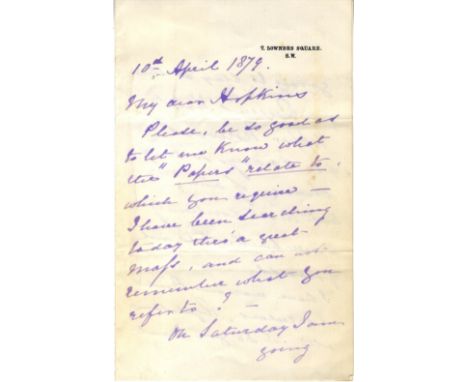 7, LOWNDES SQUARE,
S.W.
10th April 1879.
My dear Hopkins
Please, be so good as
to let me know what
the "Papers" relate to,
which you require —
I have been searching
today thro' a great
mass, and can not
remember what you
refer to ? —
On Saturday I am
going